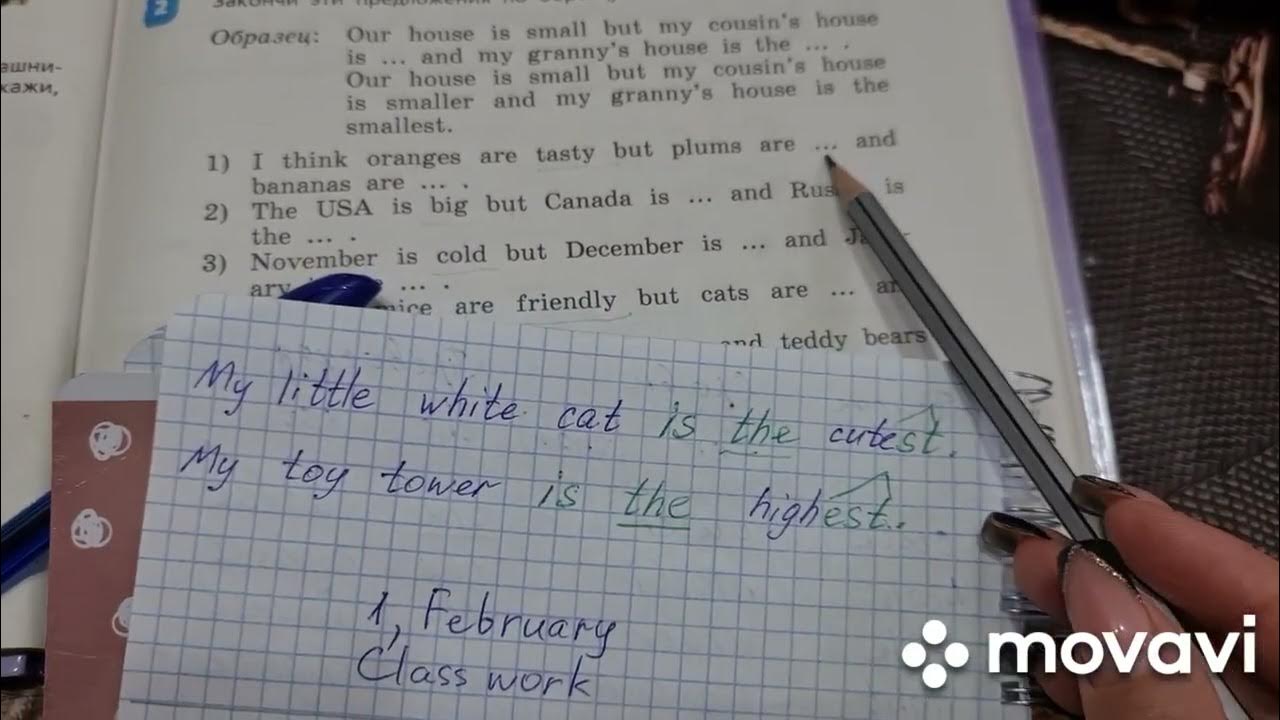 2
Закончи эти предложения по
ашни-
кажи,
Образец: Our house is small but my cousin's house
is ... and my granny's house is the ... .
Our house is small but my cousin's house
is smaller and my granny's house is the
smallest.
1) I think oranges are tasty but plums are ... and
bananas are ... .
2) The USA is big but Canada is ... and Rus is
the ... .
3) November is cold but December is ... and
ary ... .
mice are friendly but cats are ...
and teddy bears
My little white cat is the cutest.
My toy tower is the highest.
1, February
Class work
movavi